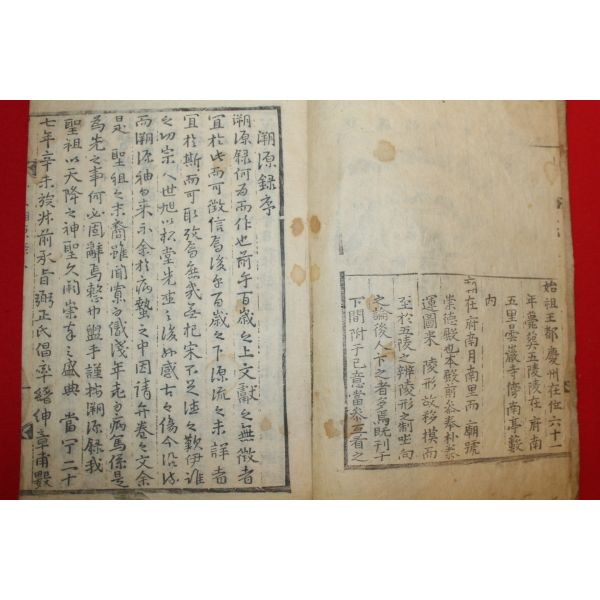 始祖王都慶州在位六十一
年薨葬五陵陵在府南
五里曇巖寺傍南亭藪
内
在府南月南里而廟號
崇德殿也本殿前參奉朴
運圖來陵形故移摸而
至於五陵之辨陵形之制坐向
之論後人下之者多焉旣刊于
下間附于己意當參互看之
溯源錄序
溯源錄何爲而作也前乎百歲之上文獻之無徵者
宜於此而可徵信焉後乎百歲之下源流之未詳者
宜於斯而可取攷焉無我杞宋不足法之歎伊誰
之功宗人世旭以松堂先生之後如感古之傷今沿
而溯源袖而來示余於病蟄之中因請弁卷之文余
是聖祖之末裔雖聞寡而識淺年老而病篤係是
爲先之事何必固辭焉整巾盥手謹按溯源錄我
聖祖以天降之神聖久闕崇之盛典當宁二十
七年辛未族前承旨弼正氏倡率縉紳章甫